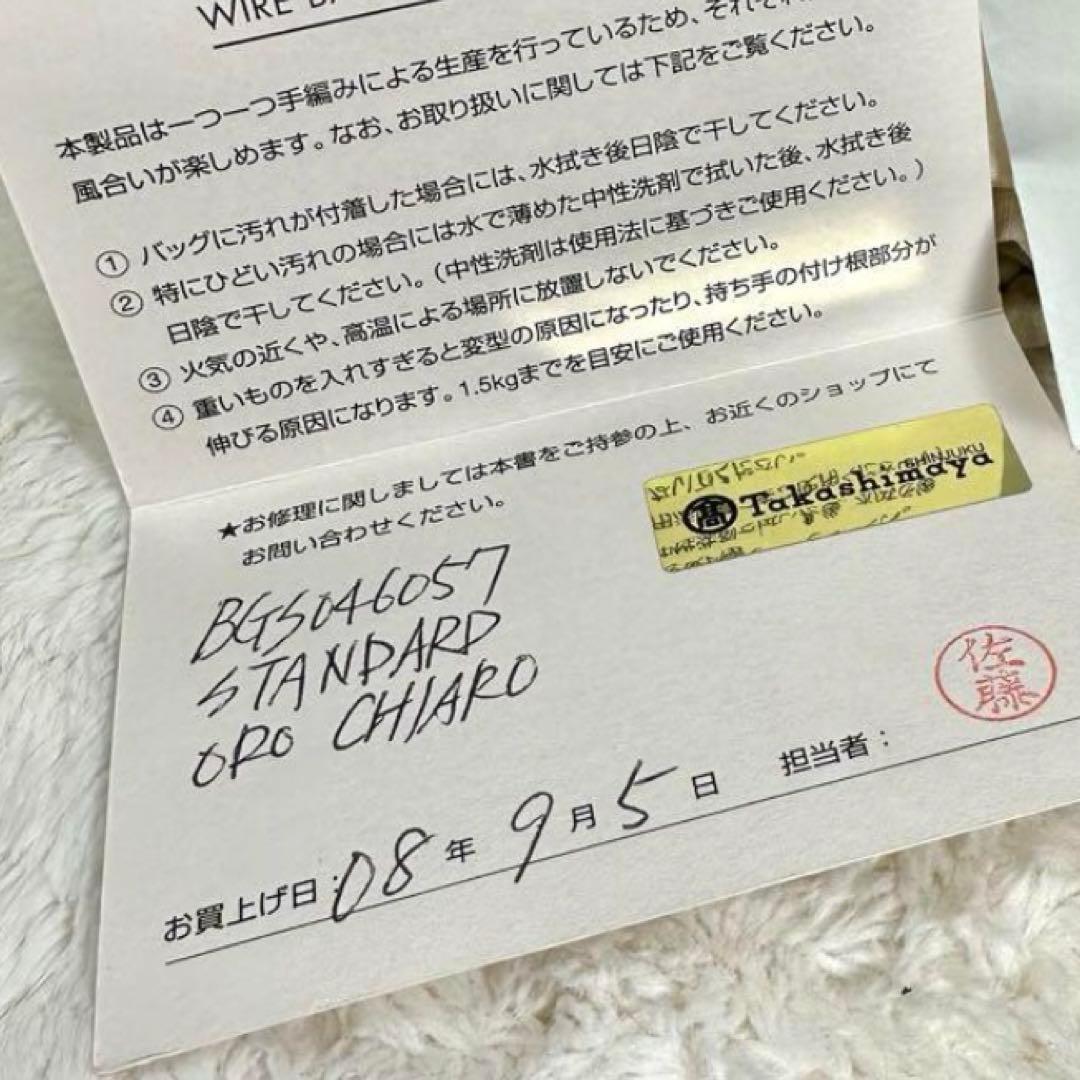 WIRE
本製品は一つ一つ手編みによる生産を行っているため、それぞれ
風合いが楽しめます。なお、お取り扱いに関しては下記をご覧ください。
① バッグに汚れが付着した場合には、水拭き後日陰で干してください。
② 特にひどい汚れの場合には水で薄めた中性洗剤で拭いた後、水拭き後
日陰で干してください。(中性洗剤は使用法に基づきご使用ください。)
③ 火気の近くや、高温による場所に放置しないでください。
④ 重いものを入れすぎると変型の原因になったり、持ち手の付け根部分が
伸びる原因になります。1.5kgまでを目安にご使用ください。
★お修理に関しましては本書をご持参の上、お近くのショップにて
お問い合わせください。
髙 Takashimaya
BGS046057
STANDARD
ORO CHIARO
佐藤
お買上げ日:08年 9月 5日 担当者: